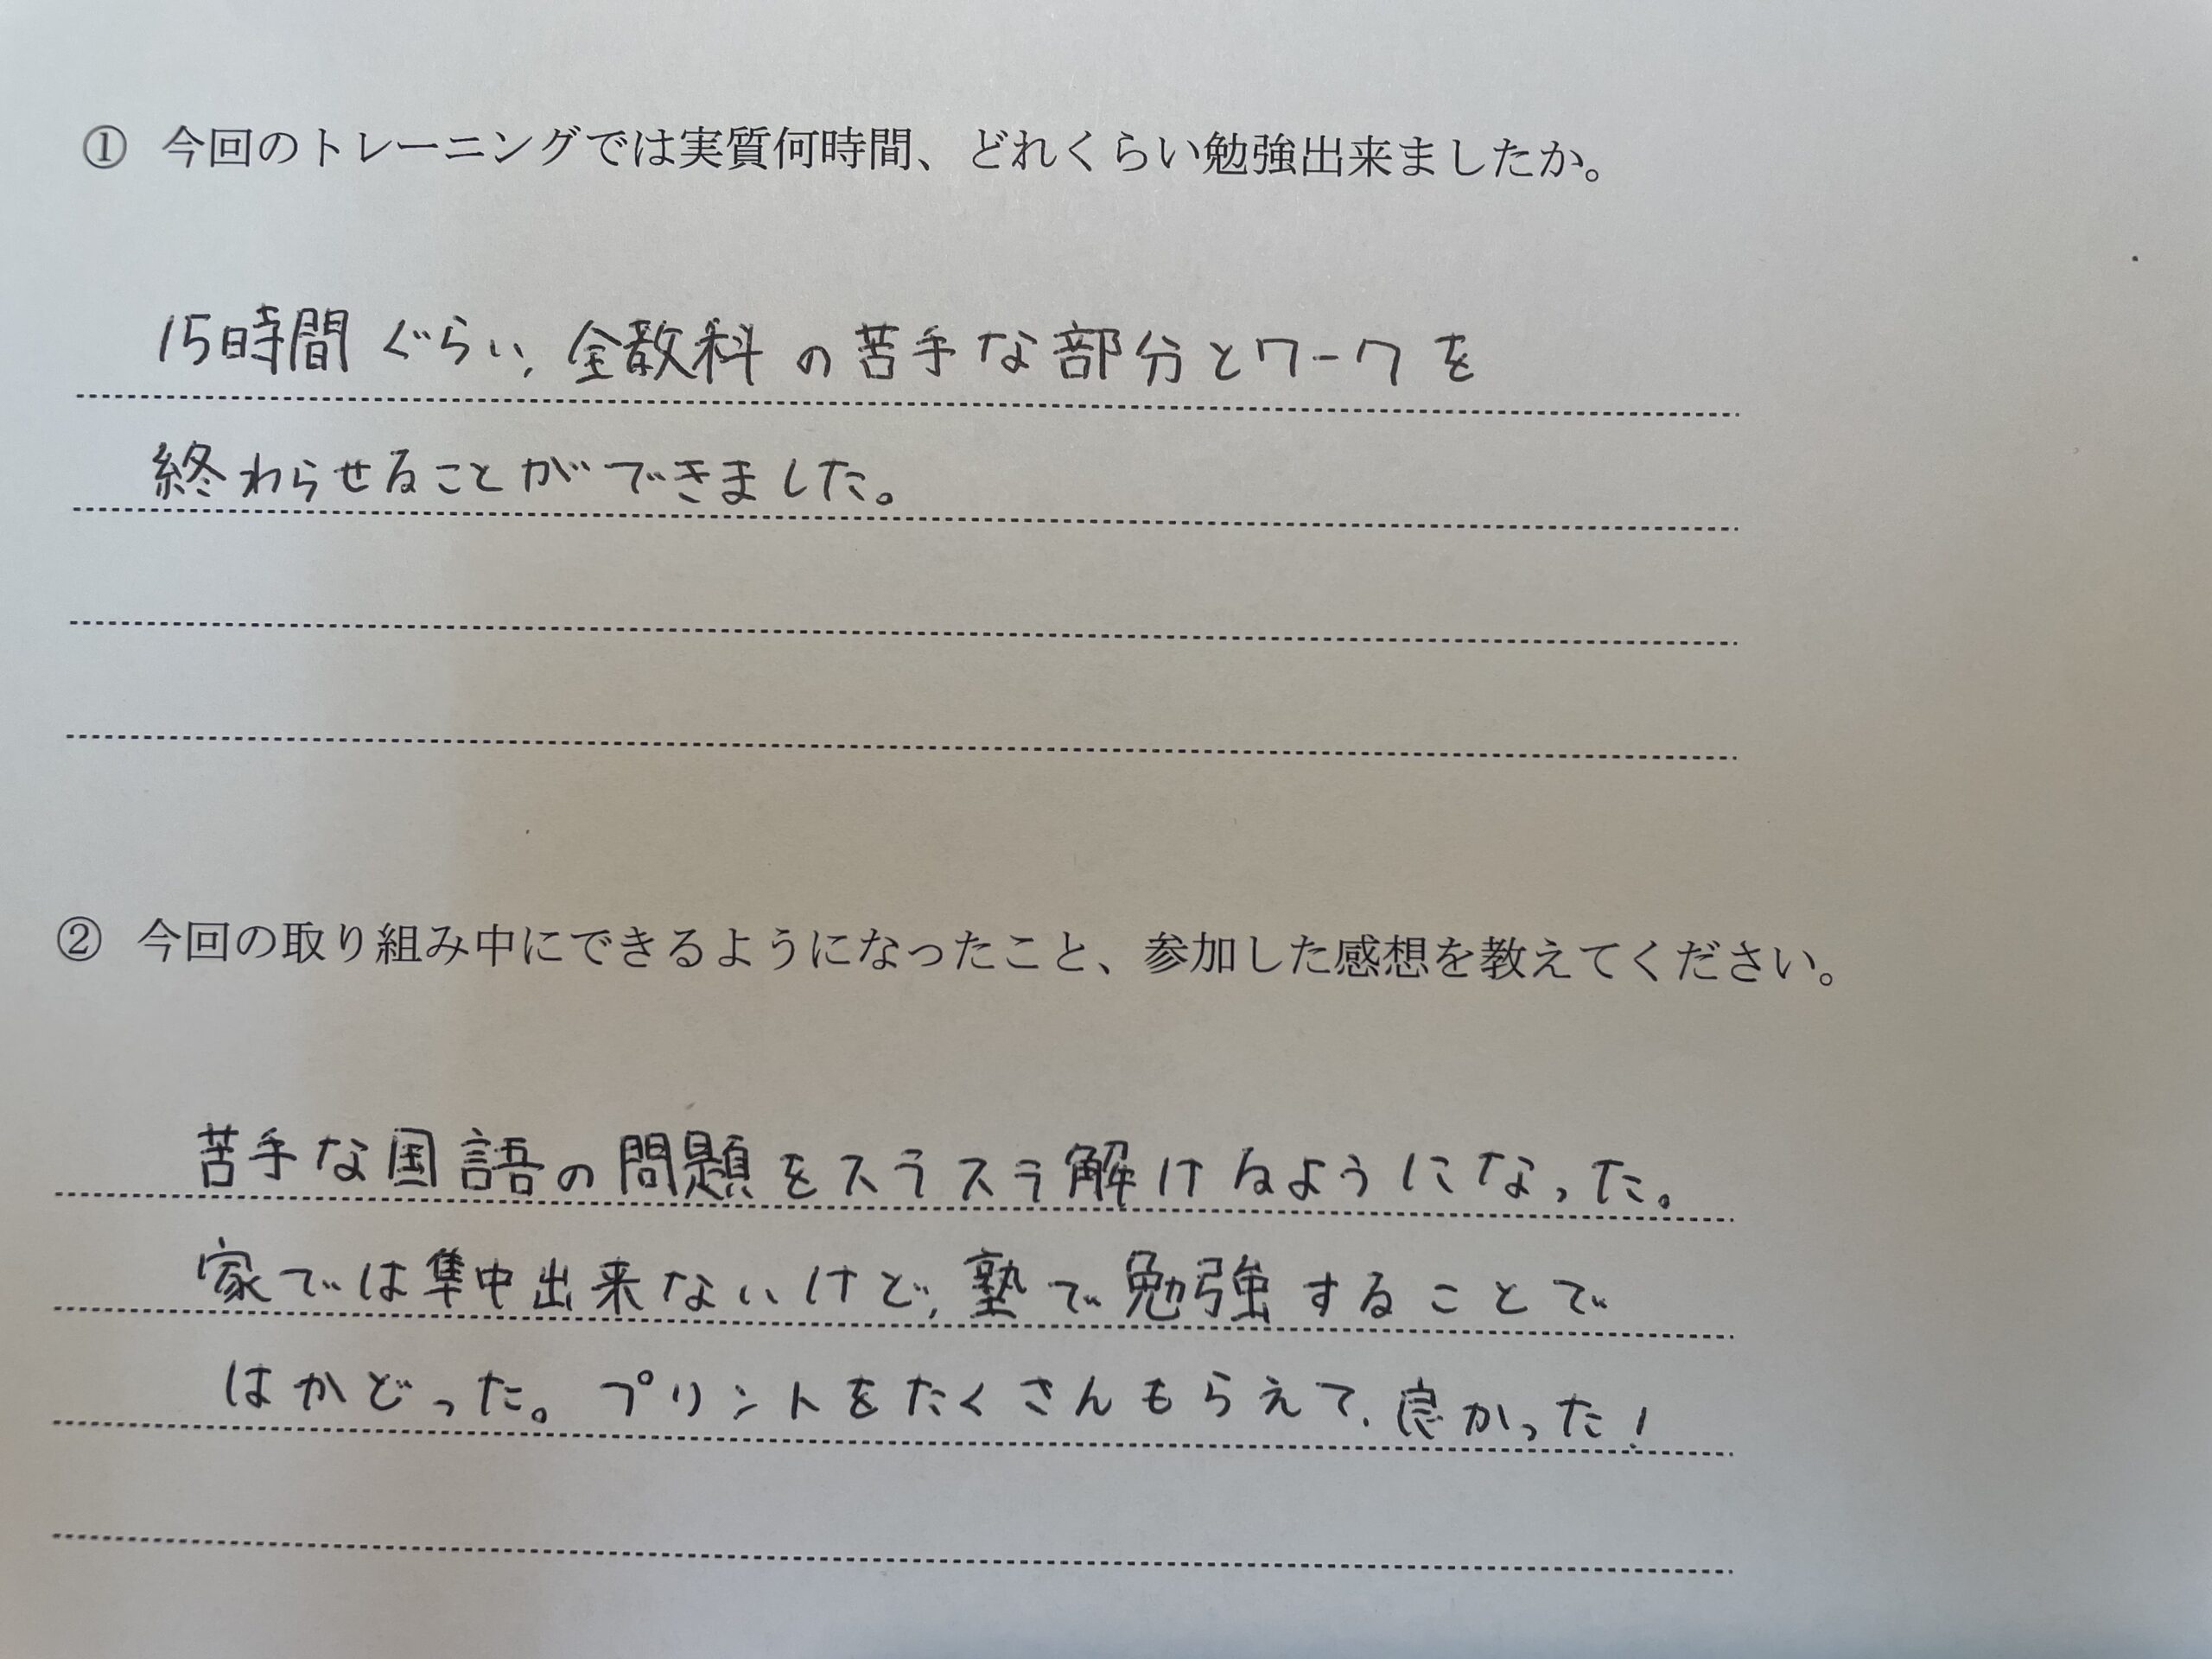 ① 今回のトレーニングでは実質何時間、どれくらい勉強出来ましたか。
15時間ぐらい、全教科の苦手な部分とワークを
終わらせることができました。
② 今回の取り組み中にできるようになったこと、参加した感想を教えてください。
苦手な国語の問題をスラスラ解けるようになった。
家では集中出来ないけど、塾で勉強することで
はかどった。プリントをたくさんもらえて、良かった！